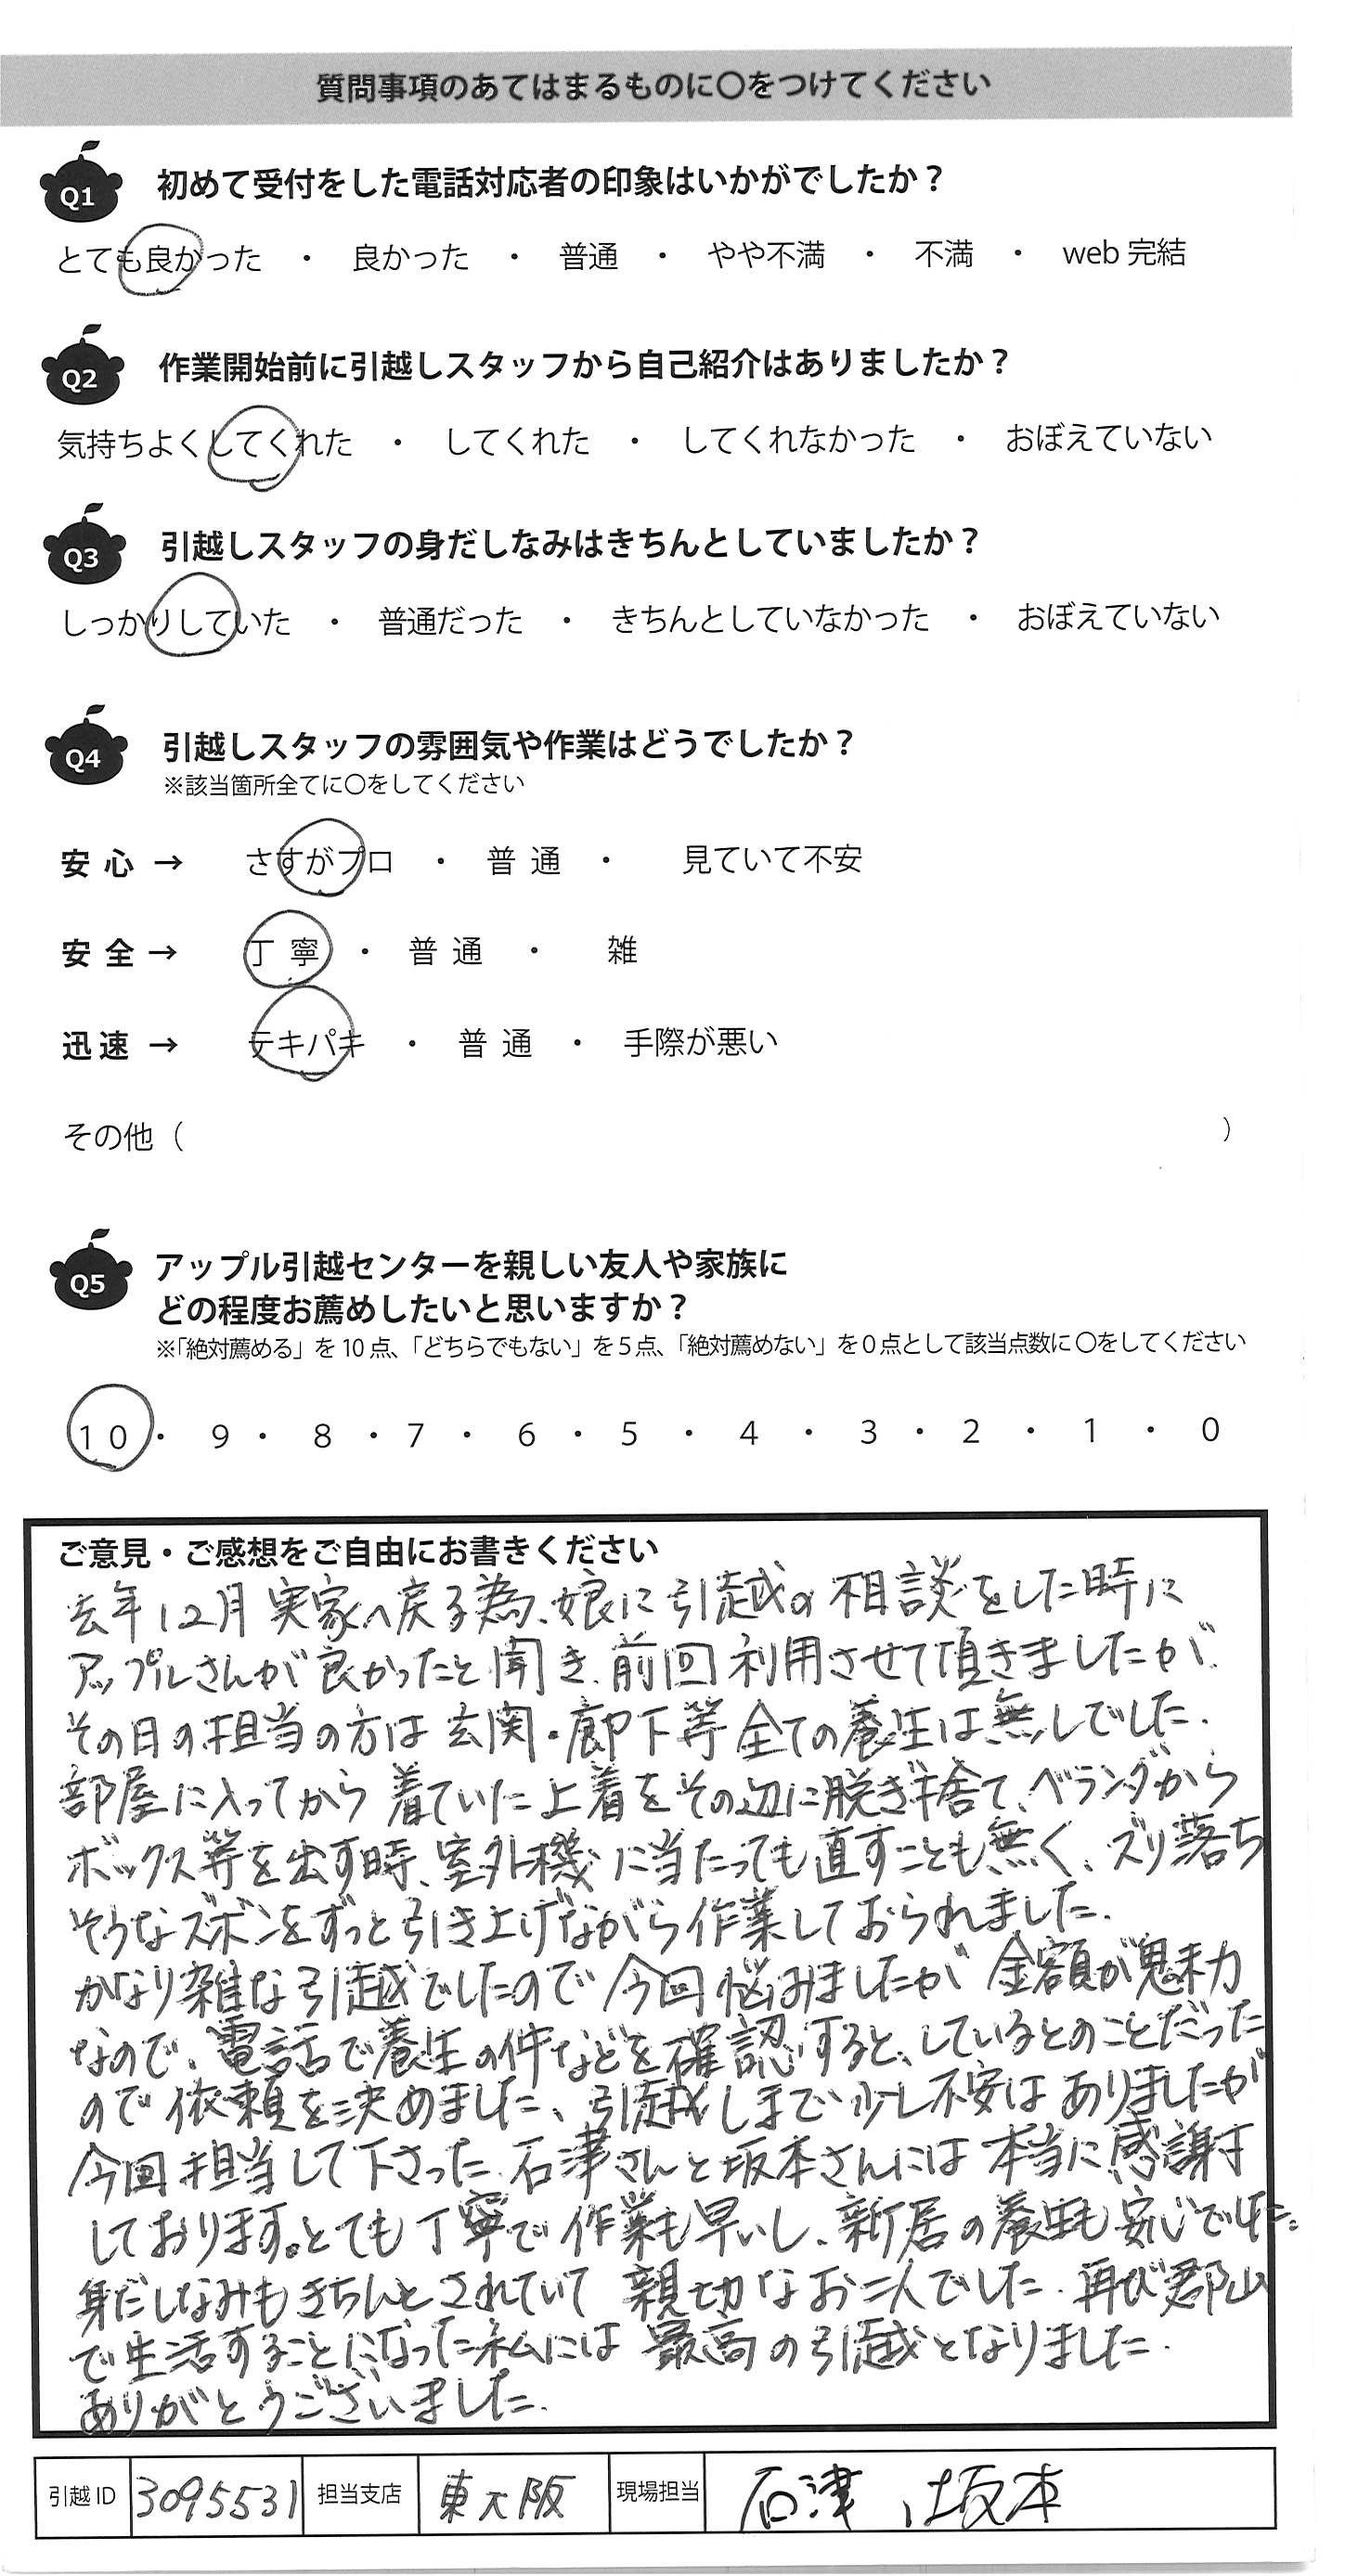 質問事項のあてはまるものに〇をつけてください
Q1 初めて受付をした電話対応者の印象はいかがでしたか？
とても良かった ・ 良かった ・ 普通 ・ やや不満 ・ 不満 ・ web 完結
Q2 作業開始前に引越しスタッフから自己紹介はありましたか？
気持ちよくしてくれた ・ してくれた ・ してくれなかった ・ おぼえていない
Q3 引越しスタッフの身だしなみはきちんとしていましたか？
しっかりしていた ・ 普通だった ・ きちんとしていなかった ・ おぼえていない
Q4 引越しスタッフの雰囲気や作業はどうでしたか？
※該当箇所全てに〇をしてください
安心 → さすがプロ ・ 普通 ・ 見ていて不安
安全 → 丁寧 ・ 普通 ・ 雑
迅速 → テキパキ ・ 普通 ・ 手際が悪い
その他（ ）
Q5 アップル引越センターを親しい友人や家族に
どの程度お薦めしたいと思いますか？
※「絶対薦める」を10点、「どちらでもない」を5点、「絶対薦めない」を0点として該当点数に〇をしてください
10 ・ 9 ・ 8 ・ 7 ・ 6 ・ 5 ・ 4 ・ 3 ・ 2 ・ 1 ・ 0
ご意見・ご感想をご自由にお書きください
去年12月 実家へ戻る為、娘に引越の相談をした時に
アップルさんが良かったと聞き、前回利用させて頂きましたが、
その日の担当の方は玄関・廊下等全ての養生は無しでした。
部屋に入ってから着ていた上着をその辺に脱ぎ捨て、ベランダから
ボックス等を出す時、室外機に当たっても直すことも無く、ズリ落ち
そうなズボンをずっと引き上げながら作業しておられました。
かなり雑な引越でしたので今回悩みましたが金額が魅力
なので、電話で養生の件などを確認すると、しているとのことだった
ので依頼を決めました、引越しまで少し不安はありましたが
今回担当して下さった、石津さんと坂本さんには本当に感謝
しております。とても丁寧で作業も早いし、新居の養生も安心でした。
身だしなみもきちんとされていて親切なお二人でした。再び郡山
で生活することになった私には最高の引越となりました。
ありがとうございました。
引越ID 3095531 担当支店 東大阪 現場担当 石津、坂本